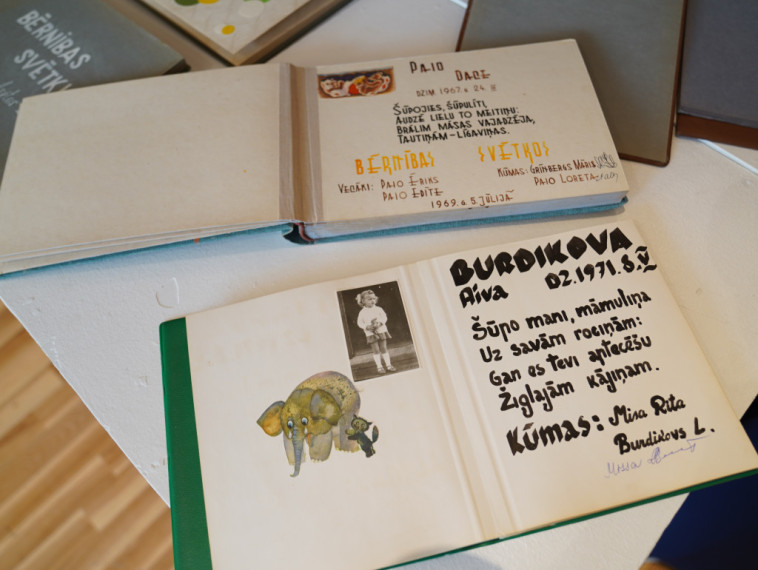 BĒRNĪBAS
SVĒTKI
PAIO
DACE
DZIM. 1967.G. 24. II
ŠŪPOJIES, ŠŪPULĪTI,
AUDZĒ LIELU TO MEITIŅU:
BRĀLIM MĀSAS VAJADZĒJA,
TAUTIŅĀM-LĪGAVIŅAS.
BĒRNĪBAS SVĒTKOS
VECĀKI: PAIO ĒRIKS
PAIO EDĪTE
KŪMAS: GRĪNBERGS MĀRIS
PAIO LORETA
1969.G. 5. JŪLIJĀ
BURDIKOVA
Aiva DZ.1971.8.V
Šūpo mani, māmuliņa
Uz savām rociņām:
Gan es tevi aptecēšu
Žiglajām kājiņam.
Kūmas: Misa Rita
Burdikovs L.